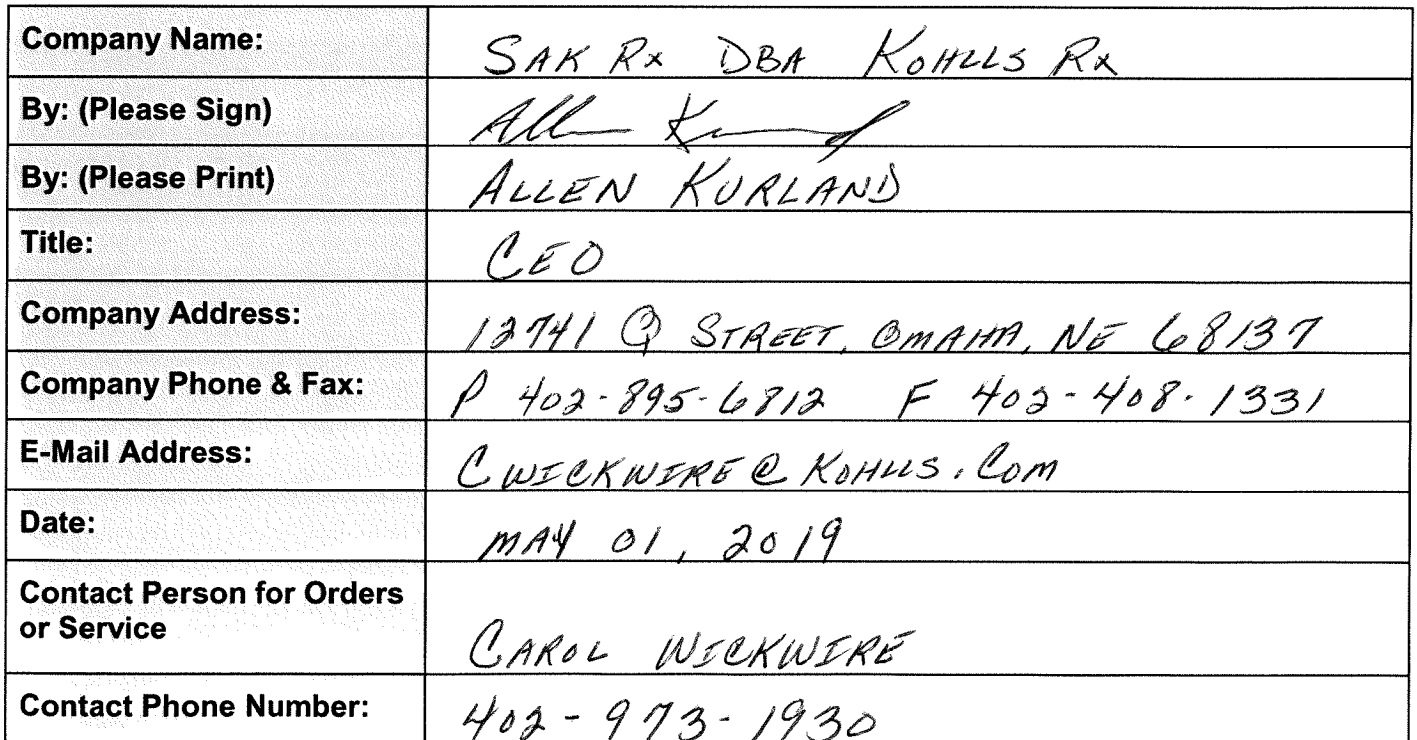 Company Name: SAK Rx DBA KOHLLS Rx
By: (Please Sign) Allen Kurland
By: (Please Print) ALLEN KURLAND
Title: CEO
Company Address: 12741 Q STREET, OMAHA, NE 68137
Company Phone & Fax: P 402-895-6812 F 402-408-1331
E-Mail Address: CWICKWIRE@KOHLLS.COM
Date: MAY 01, 2019
Contact Person for Orders
or Service CAROL WICKWIRE
Contact Phone Number: 402-973-1930